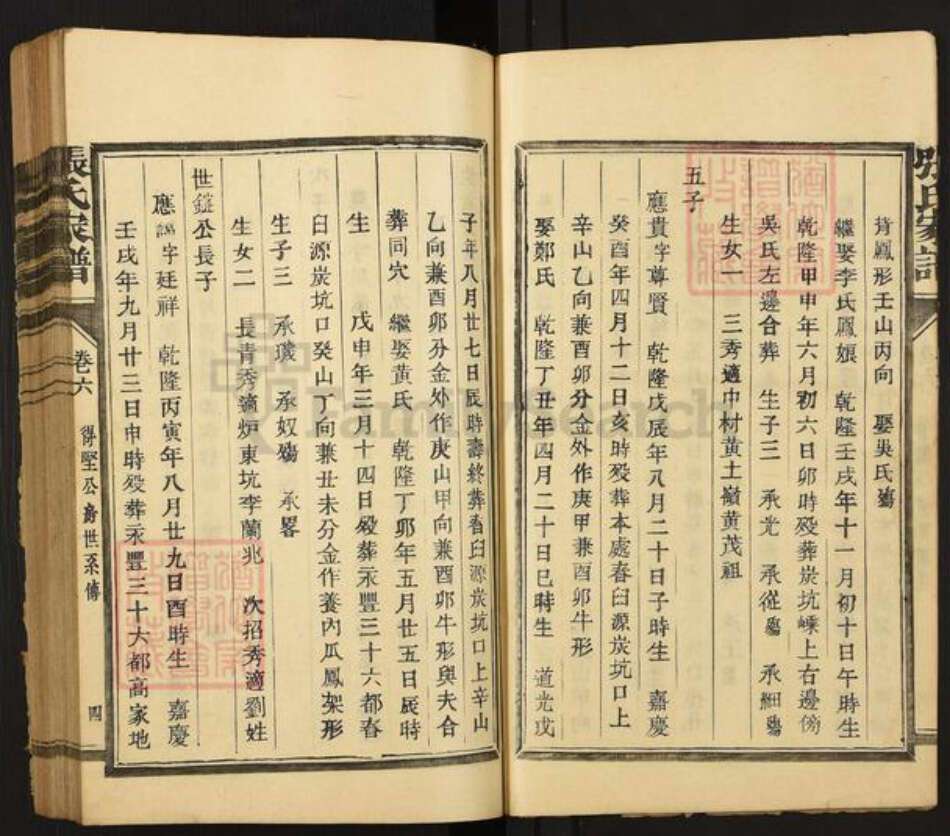 張氏家譜
背鳳形壬山丙向 娶吳氏殤
繼娶李氏鳳娘 乾隆壬戌年十一月初十日午時生
乾隆甲申年六月初六日卯時殁葬炭坑嵊上右邊傍
吳氏左邊合葬 生子三 承光 承從殤 承細殤
生女一 三秀適中材黃土嶺黃茂祖
五子
應貴字尊賢 乾隆戊辰年八月二十日子時生 嘉慶
癸酉年四月十二日亥時殁葬本處舂臼源炭坑口上
辛山乙向兼酉卯分金外作庚甲兼酉卯牛形
娶鄭氏 乾隆丁丑年四月二十日巳時生 道光戊
子年八月廿七日辰時壽終葬舂臼源炭坑口上辛山
乙向兼酉卯分金外作庚山甲向兼酉卯牛形與夫合
葬同穴 繼娶黃氏 乾隆丁卯年五月廿五日辰時
生 戊申年三月十四日殁葬永豐三十六都舂
臼源炭坑口癸山丁向兼丑未分金作養內瓜鳳架形
生子三 承璣 承奴殤 承畧
生女二 長青秀適炉東坑李蘭兆 次招秀適劉姓
世鎧公長子
應 字廷祥 乾隆丙寅年八月廿九日酉時生 嘉慶
壬戌年九月廿三日申時殁葬永豐三十六都高家地
張氏家譜
卷六
得堅公房世系傳
四
FamilySearch